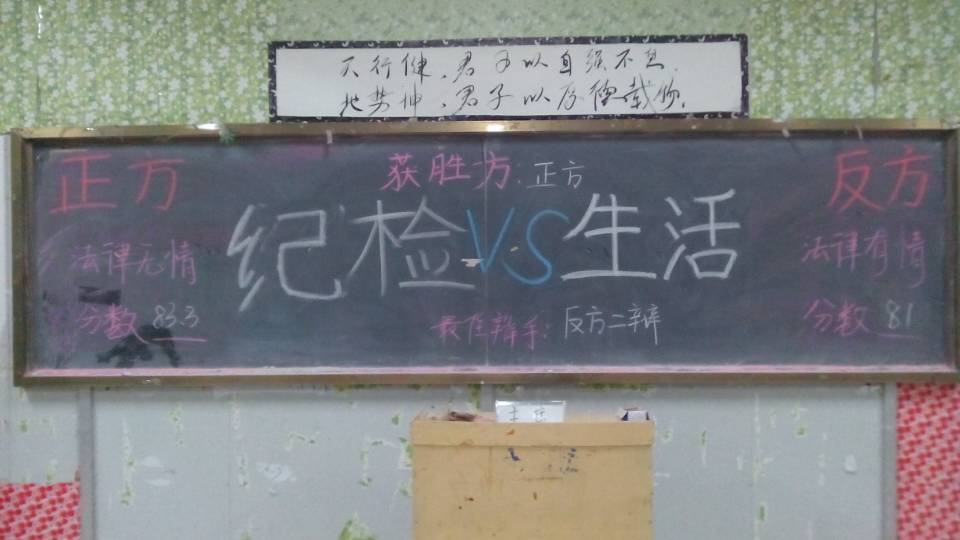 天行健，君子以自强不息.
地势坤，君子以厚德载物.
正方
获胜方：正方
反方
纪检VS生活
法律无情
法律有情
分数 83.3
最佳辩手：反方二辩
分数 81
主席